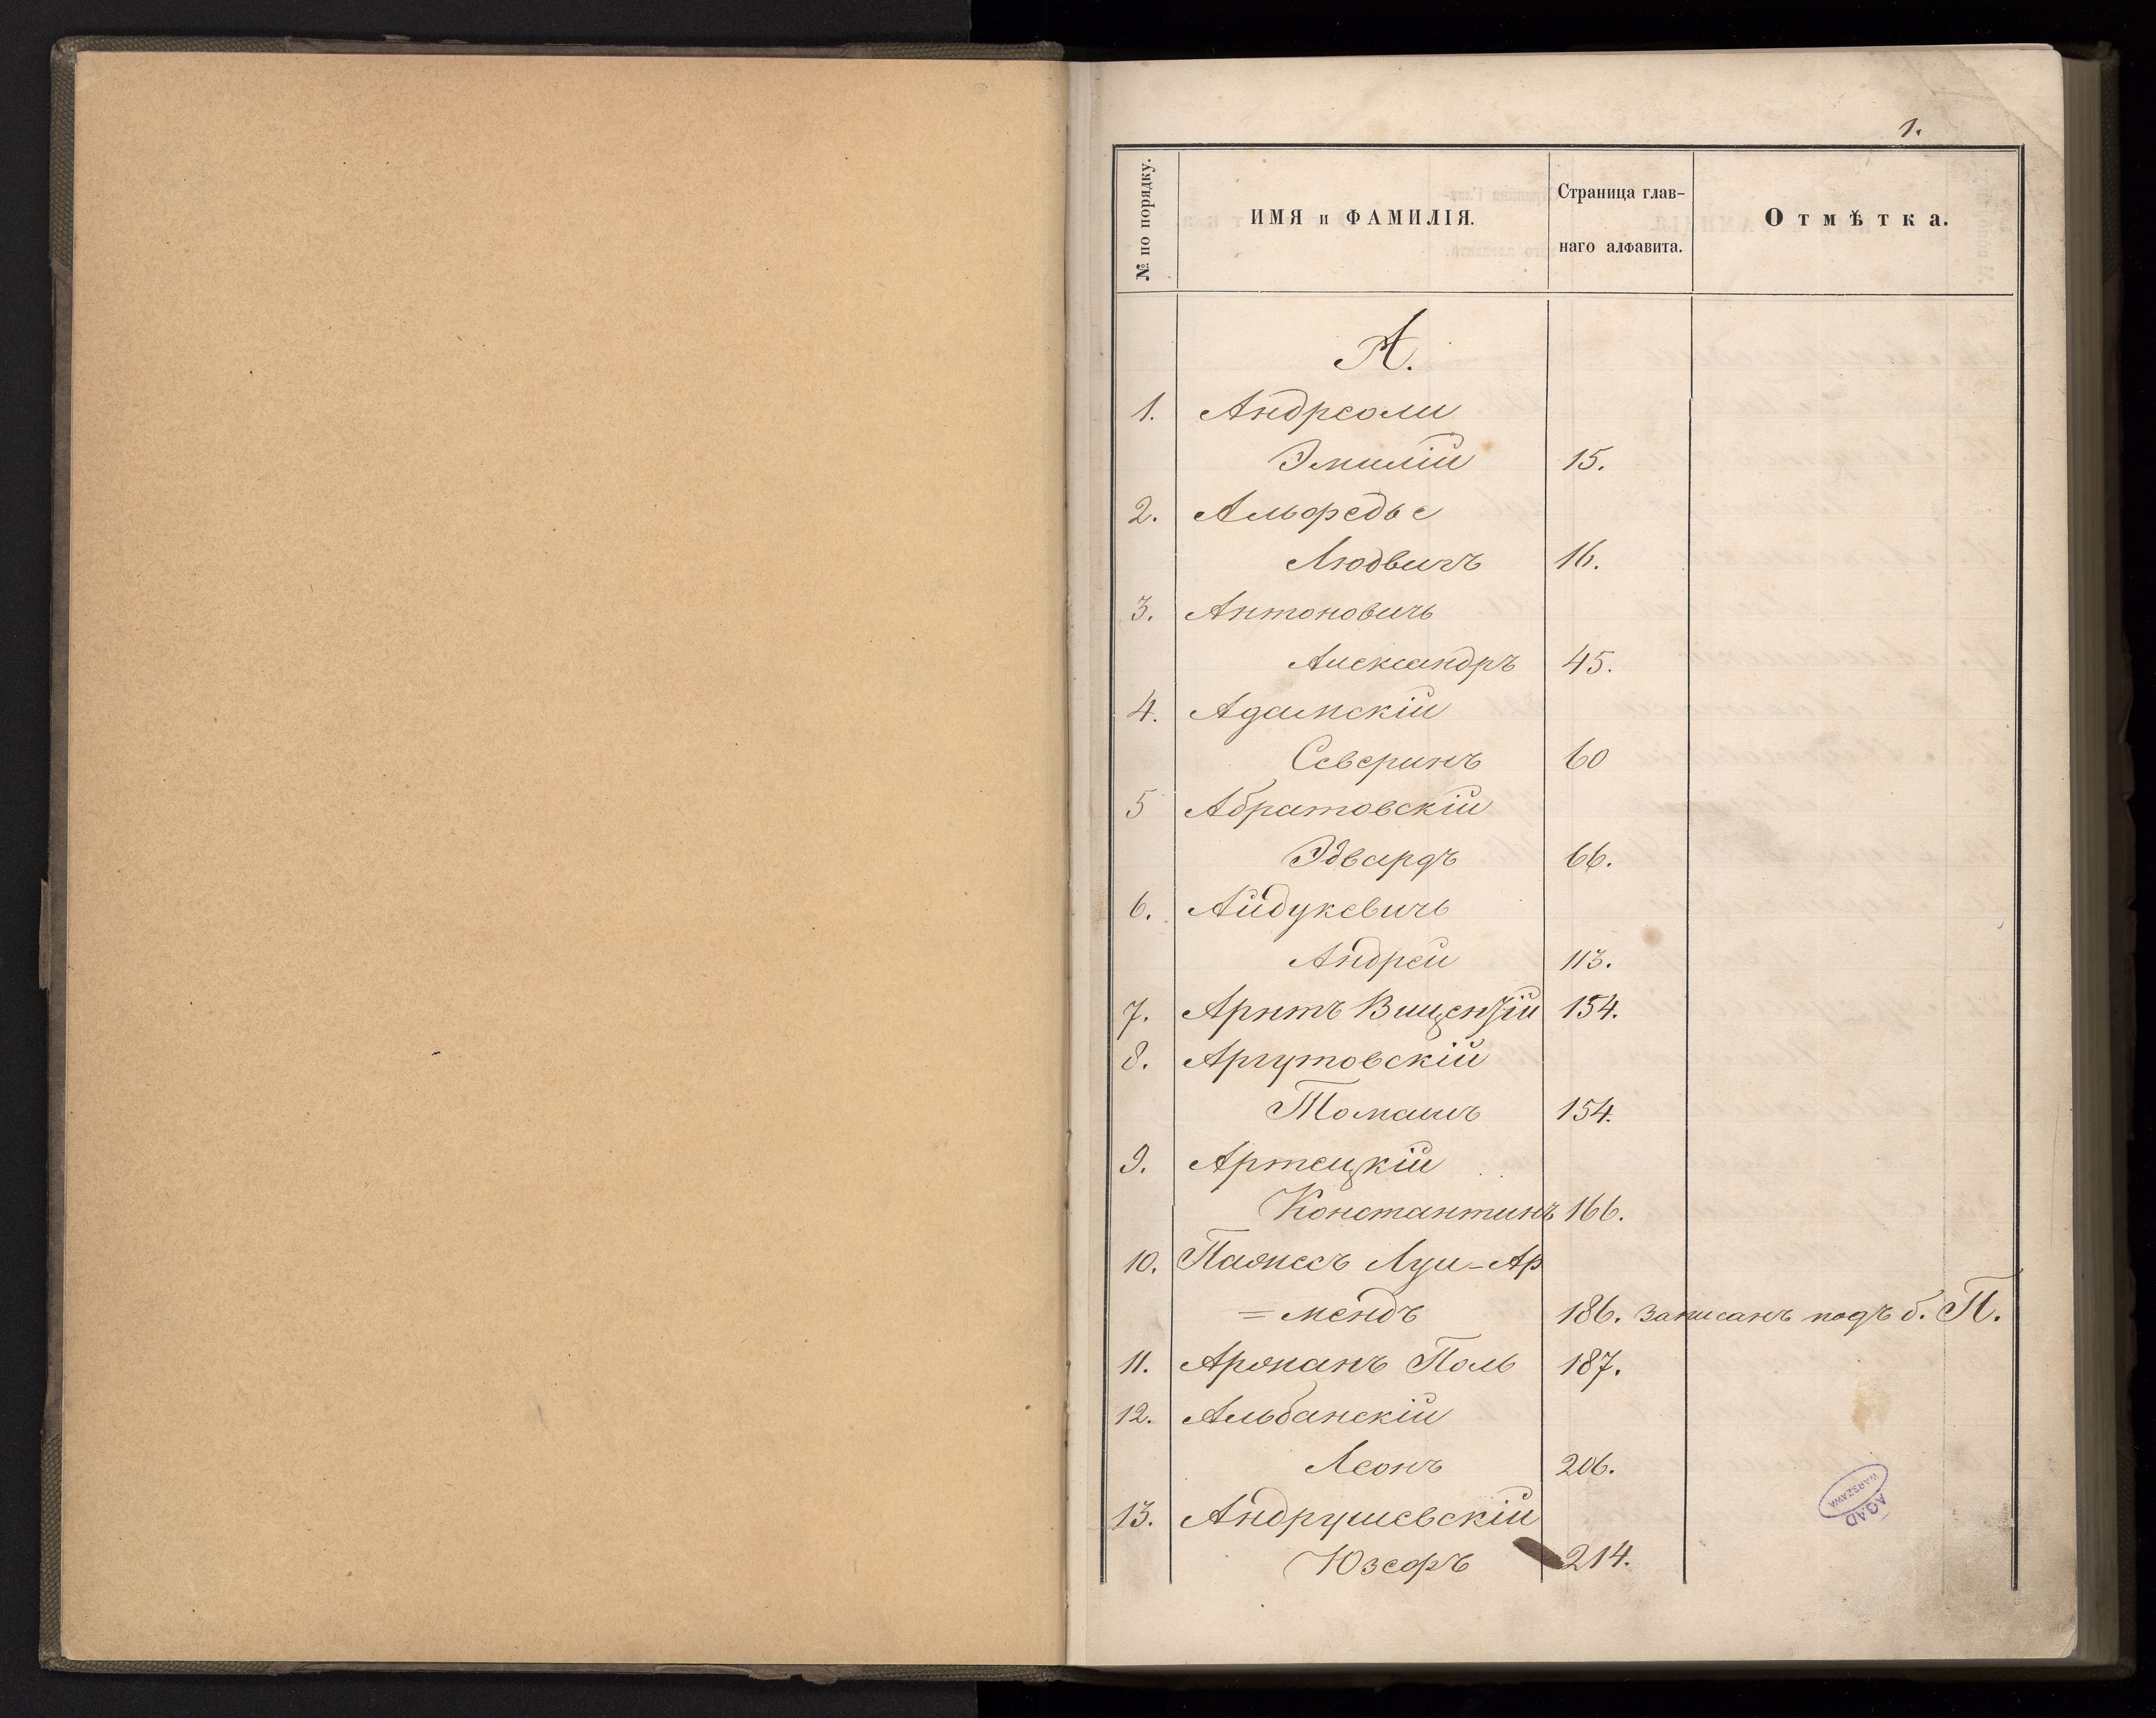 1.
№ по порядку.
ИМЯ и ФАМИЛІЯ.
Страница глав-
наго алфавита.
Отмѣтка.
А.
1. Андреоли
Эмилій 15.
2. Альфедье
Людвигъ 16.
3. Антоновичъ
Александръ 45.
4. Адамскій
Северинъ 60
5 Абратовскій
Эдвардъ 66.
6. Айдукевичъ
Андрей 113.
7. Арнтъ Вищензій 154.
8. Аргутовскій
Томашъ 154.
9. Артецкій
Константинъ 166.
10. Пажесъ Луи-Ар
=мендъ 186. записанъ подъ б. П.
11. Аржанъ Поль 187.
12. Альбанскій
Леонъ 206.
13. Андрушевскій
Юзефъ 214.
AGAD
WARSZAWA